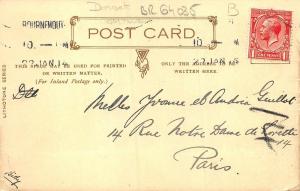 Dorset BR 64025 B
BOURNEMOUTH
POST CARD
THIS SPACE MAY BE USED FOR PRINTED
OR WRITTEN MATTER.
(For Inland Postage only.)
ONLY THE ADDRESS TO BE
WRITTEN HERE.
LITHOTONE SERIES
Melles Yvonne et Andrée Guillot
14 Rue Notre Dame de Lorette
14
Paris.